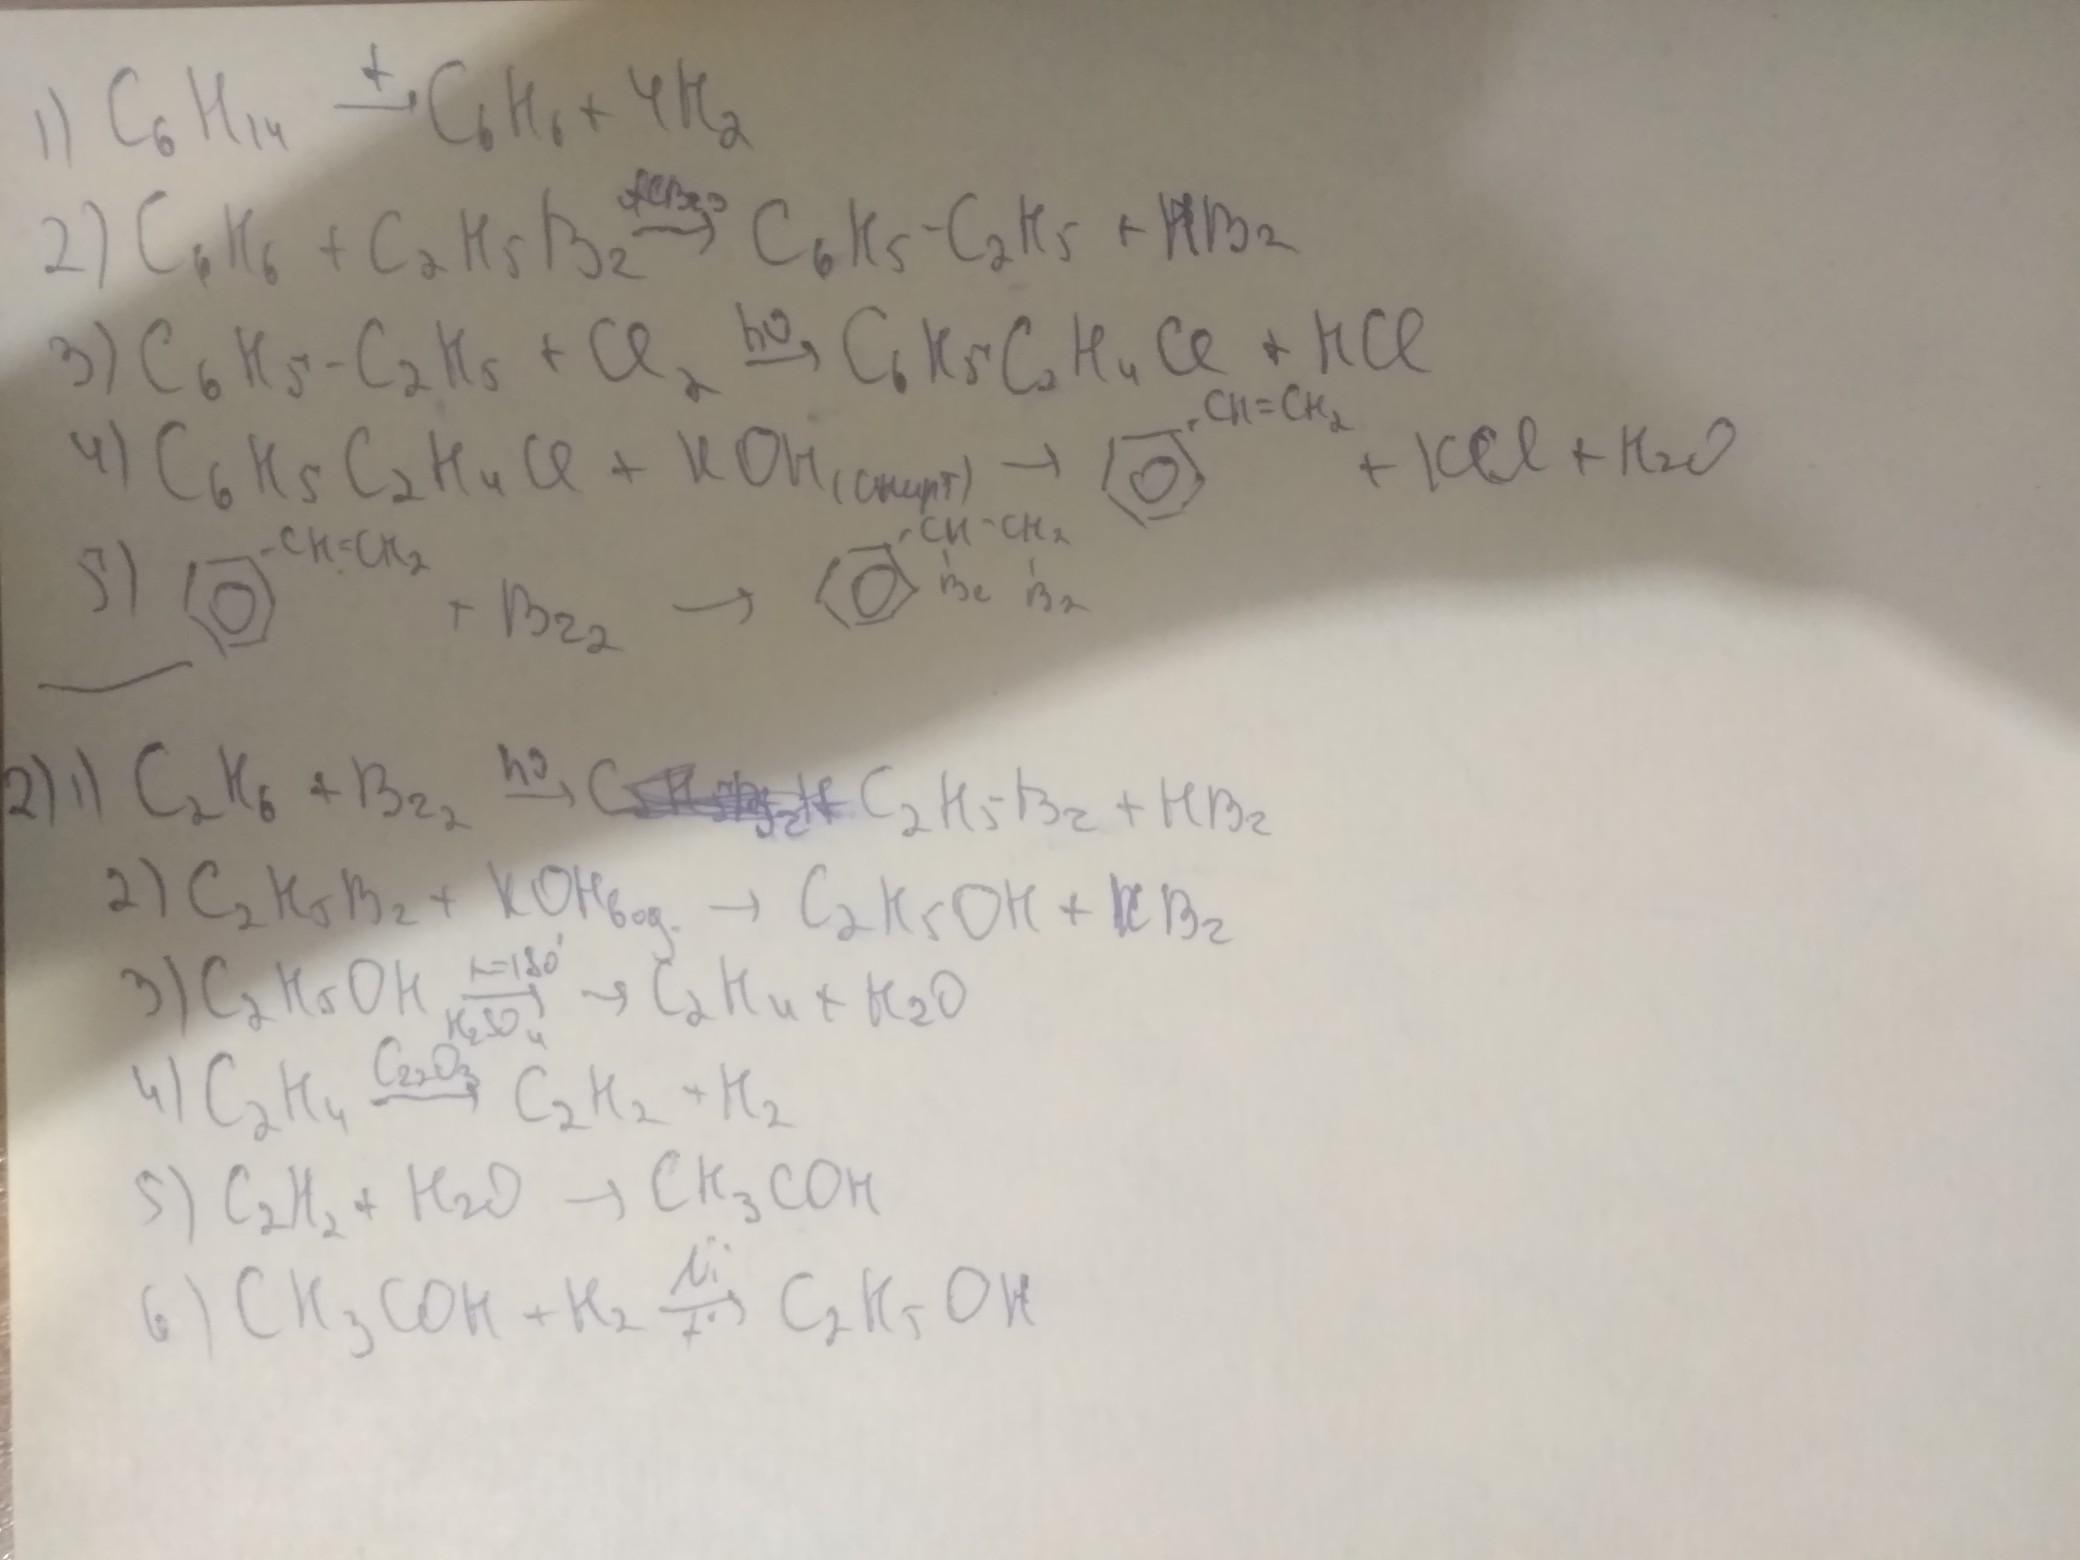 1) C6H14 →t C6H6 + 4H2
2) C6H6 + C2H5Br →AlBr3 C6H5-C2H5 + HBr
3) C6H5-C2H5 + Cl2 →hν C6H5C2H4Cl + HCl
4) C6H5C2H4Cl + KOH(спирт) → -CH=CH2 + KCl + H2O
5) -CH=CH2 + Br2 → -CH-CH2
Br Br
2) 1) C2H6 + Br2 →hν C2H5-Br + HBr
2) C2H5Br + KOHвод. → C2H5OH + KBr
3) C2H5OH →t=180° H2SO4 → C2H4 + H2O
4) C2H4 →Cr2O3 C2H2 + H2
5) C2H2 + H2O → CH3COH
6) CH3COH + H2 →Ni t° C2H5OH